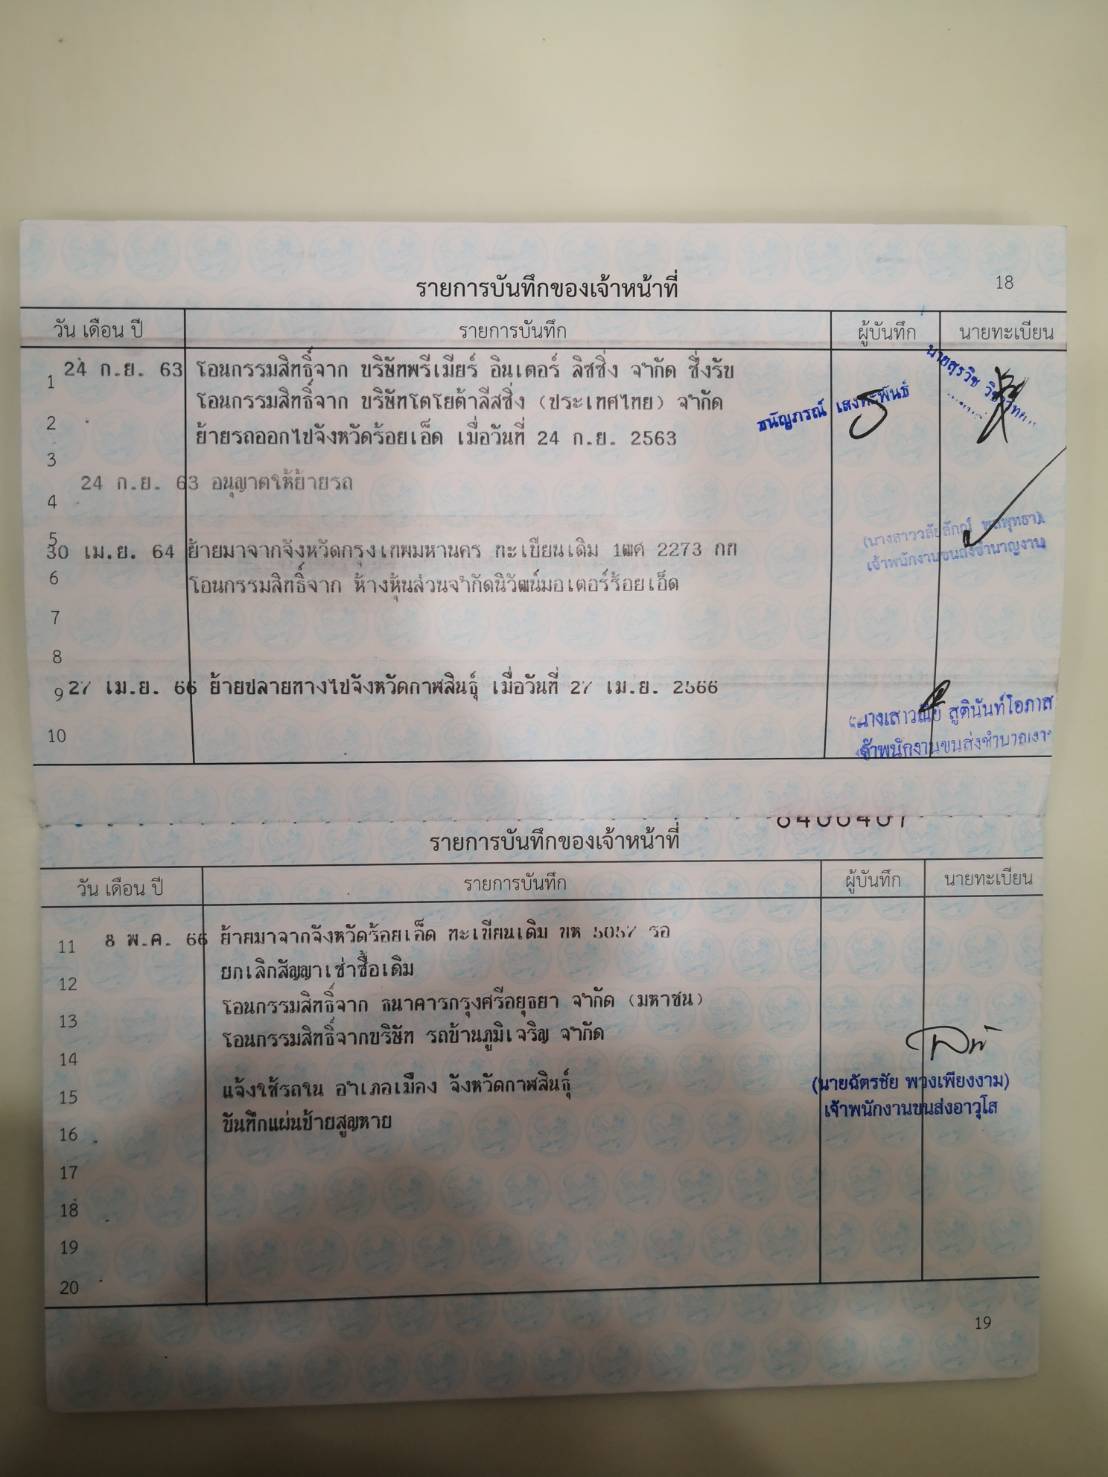 รายการบันทึกของเจ้าหน้าที่
18
วัน เดือน ปี รายการบันทึก ผู้บันทึก นายทะเบียน
1 24 ก.ย. 63 โอนกรรมสิทธิ์จาก บริษัทพรีเมียร์ อินเตอร์ ลิซซิ่ง จำกัด ซึ่งรับ
โอนกรรมสิทธิ์จาก บริษัทโตโยต้าลีสซิ่ง (ประเทศไทย) จำกัด
2 ย้ายรถออกไปจังหวัดร้อยเอ็ด เมื่อวันที่ 24 ก.ย. 2563
ธนัญภรณ์
3
24 ก.ย. 63 อนุญาตให้ย้ายรถ
4
5
30 เม.ย. 64 ย้ายมาจากจังหวัดกรุงเทพมหานคร ทะเบียนเดิม 1ฒศ 2273 กท
เจ้าพนักงานขนส่งชำนาญงาน
6 โอนกรรมสิทธิ์จาก ห้างหุ้นส่วนจำกัดนิวัฒน์มอเตอร์ร้อยเอ็ด
7
8
9 27 เม.ย. 66 ย้ายปลายทางไปจังหวัดกาฬสินธุ์ เมื่อวันที่ 27 เม.ย. 2566
สูตินันท์โอภาส
10
เจ้าพนักงานขนส่งชำนาญงาน
รายการบันทึกของเจ้าหน้าที่
วัน เดือน ปี รายการบันทึก ผู้บันทึก นายทะเบียน
11 8 พ.ค. 66 ย้ายมาจากจังหวัดร้อยเอ็ด ทะเบียนเดิม ขห 5057 รอ
12 ยกเลิกสัญญาเช่าซื้อเดิม
13 โอนกรรมสิทธิ์จาก ธนาคารกรุงศรีอยุธยา จำกัด (มหาชน)
14 โอนกรรมสิทธิ์จากบริษัท รถบ้านภูมิเจริญ จำกัด
15 แจ้งใช้รถใน อำเภอเมือง จังหวัดกาฬสินธุ์
(นายฉัตรชัย พวงเพียงงาม)
เจ้าพนักงานขนส่งอาวุโส
16 บันทึกแผ่นป้ายสูญหาย
17
18
19
20
19